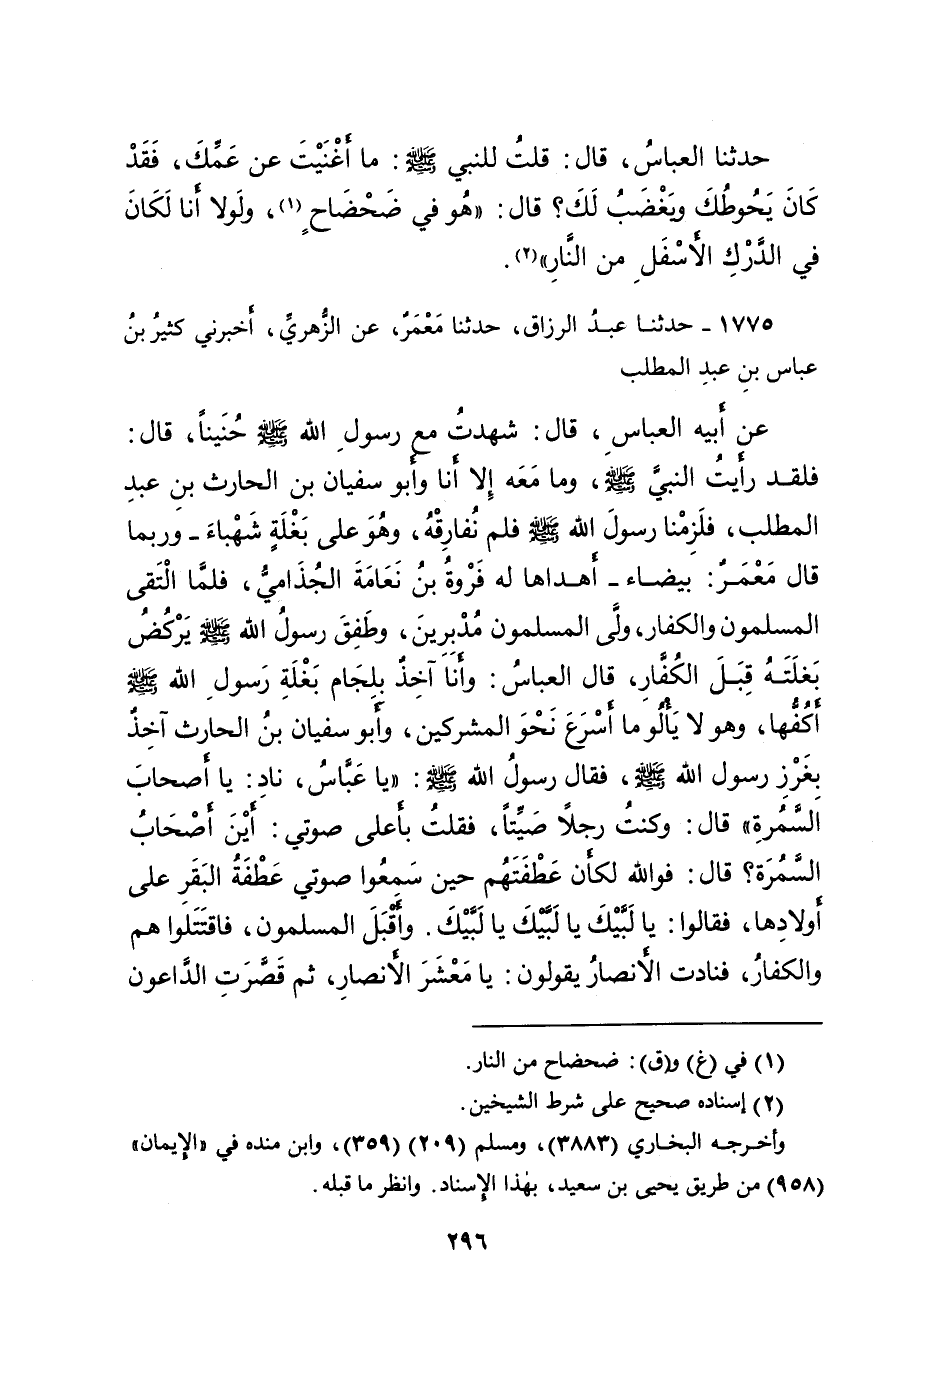 حدثنا العباسُ، قال: قلتُ للنبي ﷺ: ما أَغْنَيْتَ عن عَمِّكَ، فَقَدْ
كَانَ يَحُوطُكَ ويَغْضَبُ لَكَ؟ قال: «هُو في ضَحْضَاحٍ (١)، ولَولا أَنا لَكَانَ
في الدَّرْكِ الأَسْفَلِ من النَّارِ»(٢).
١٧٧٥ - حدثنا عبدُ الرزاق، حدثنا مَعْمَرٌ، عن الزُّهريِّ، أَخبرني كثيرُ بنُ
عباس بنِ عبدِ المطلب
عن أَبيه العباسِ، قال: شهدتُ مع رسولِ الله ﷺ حُنَيناً، قال:
فلقد رأَيتُ النبيَّ ﷺ، وما مَعَه إِلا أَنا وأَبو سفيان بن الحارث بنِ عبدِ
المطلب، فلَزِمْنا رسولَ الله ﷺ فلم نُفارِقْهُ، وهُوَ على بَغْلَةٍ شَهْباءَ - وربما
قال مَعْمَرٌ: بيضاء - أَهداها له فَرْوةُ بنُ نَعَامَةَ الجُذَاميُّ، فلمَّا الْتَقى
المسلمون والكفار، ولَّى المسلمون مُدْبِرِينَ، وطَفِقَ رسولُ الله ﷺ يَرْكُضُ
بَغلَتَهُ قِبَلَ الكُفَّارِ، قال العباسُ: وأَنَا آخِذٌ بِلِجَام بَغْلَةِ رَسولِ الله ﷺ
أَكُفُّها، وهو لا يَأْلُو ما أَسْرَعَ نَحْوَ المشركين، وأَبو سفيان بنُ الحارث آخِذٌ
بِغَرْزِ رسول الله ﷺ، فقال رسولُ الله ﷺ: «يا عَبَّاسُ، نادِ: يا أَصحابَ
السَّمُرةِ» قال: وكنتُ رجلًا صَيِّتاً، فقلتُ بأَعلى صوتي: أَيْنَ أَصْحَابُ
السَّمُرَة؟ قال: فوالله لكأَن عَطْفَتَهُم حين سَمِعُوا صوتي عَطْفَةُ البَقَرِ على
أَولادِها، فقالوا: يا لَبَّيْكَ يا لَبَّيْكَ يا لَبَّيْكَ. وأَقْبَلَ المسلمون، فاقتَتَلوا هم
والكفارُ، فنادت الأَنصارُ يقولون: يا مَعْشَرَ الأَنصارِ، ثم قَصَّرَتِ الدَّاعون
(١) في (غ) و(ق): ضحضاح من النار.
(٢) إسناده صحيح على شرط الشيخين.
وأخرجه البخاري (٣٨٨٣)، ومسلم (٢٠٩) (٣٥٩)، وابن منده في «الإيمان»
(٩٥٨) من طريق يحيى بن سعيد، بهٰذا الإسناد. وانظر ما قبله.
٢٩٦